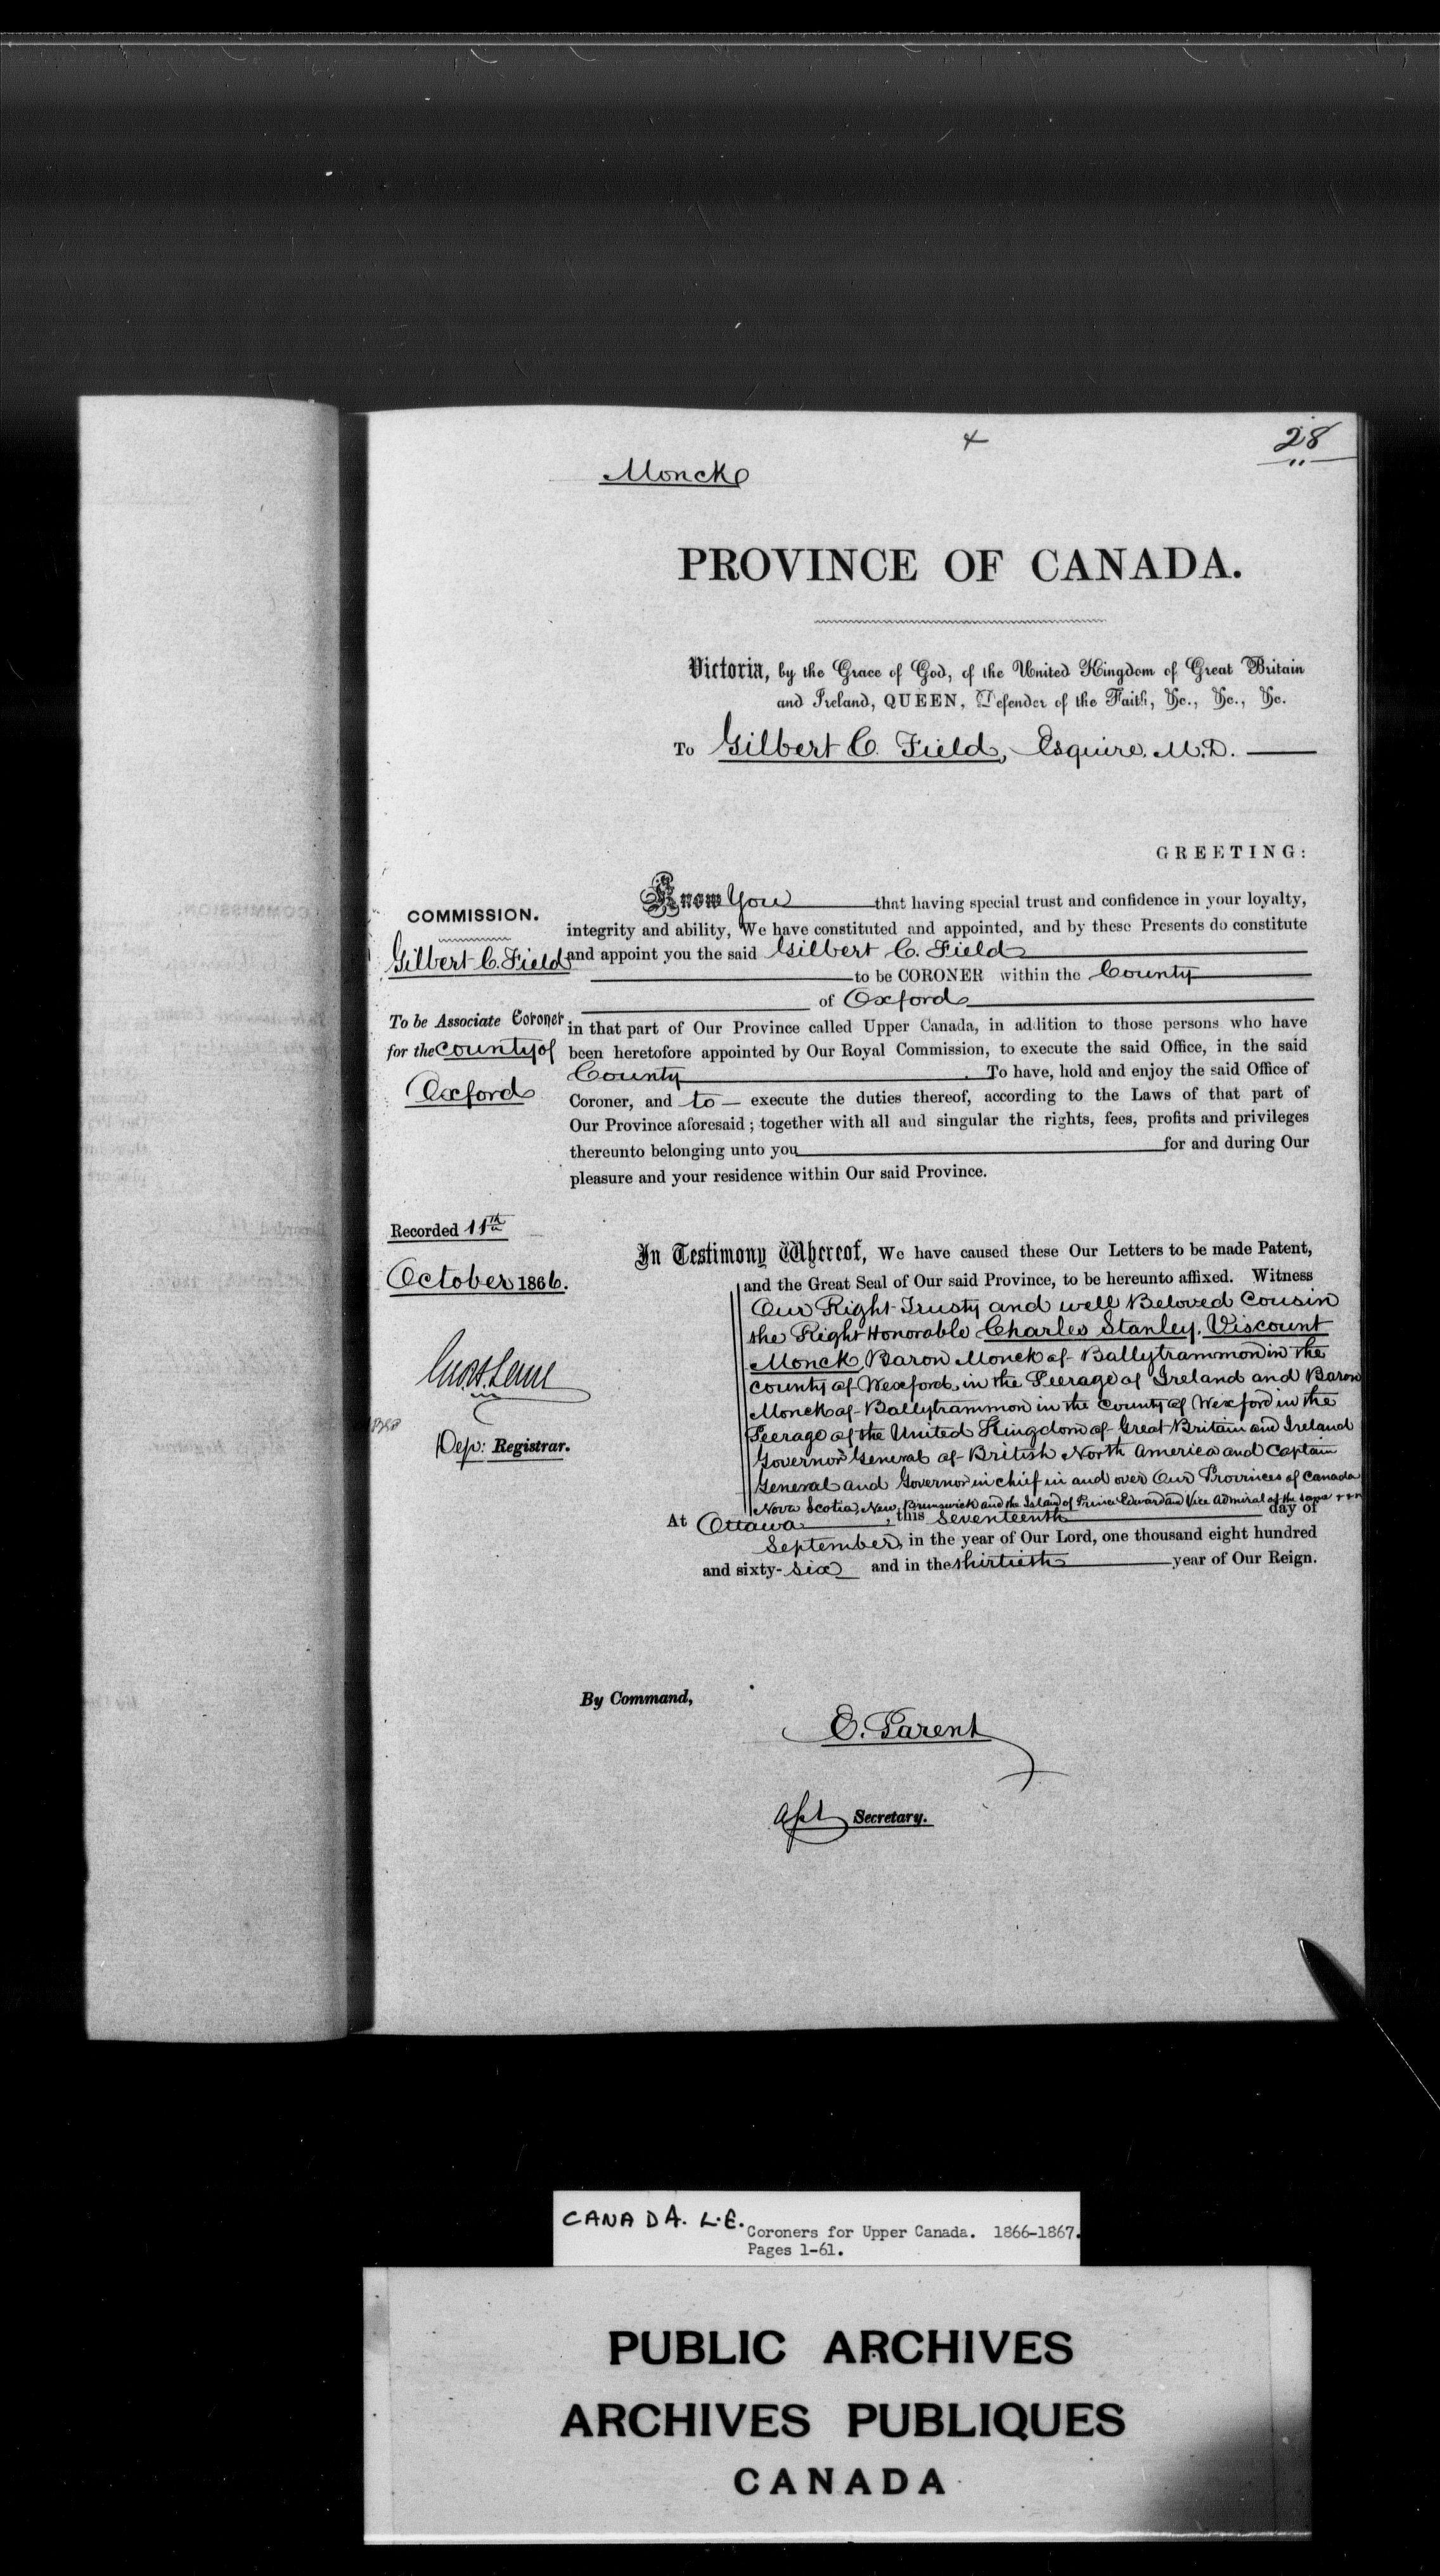 28
Monck
PROVINCE OF CANADA.
Victoria, by the Grace of God, of the United Kingdom of Great Britain
and Ireland, QUEEN, Defender of the Faith, &c., &c., &c.
To Gilbert C. Field, Esquire, M.D.
GREETING:
COMMISSION.
Gilbert C. Field
To be Associate Coroner
for the County of
Oxford
Know You that having special trust and confidence in your loyalty,
integrity and ability, We have constituted and appointed, and by these Presents do constitute
and appoint you the said Gilbert C. Field
to be CORONER within the County
of Oxford
in that part of Our Province called Upper Canada, in addition to those persons who have
been heretofore appointed by Our Royal Commission, to execute the said Office, in the said
County. To have, hold and enjoy the said Office of
Coroner, and to execute the duties thereof, according to the Laws of that part of
Our Province aforesaid; together with all and singular the rights, fees, profits and privileges
thereunto belonging unto you for and during Our
pleasure and your residence within Our said Province.
Recorded 11th
October 1866.
Dep: Registrar.
In Testimony Whereof, We have caused these Our Letters to be made Patent,
and the Great Seal of Our said Province, to be hereunto affixed. Witness
Our Right Trusty and well Beloved Cousin
the Right Honorable Charles Stanley, Viscount
Monck, Baron Monck of Ballytrammon in the
County of Wexford, in the Peerage of Ireland and Baron
Monck of Ballytrammon in the County of Wexford in the
Peerage of the United Kingdom of Great Britain and Ireland
Governor General of British North America and Captain
General and Governor in chief in and over Our Provinces of Canada
Nova Scotia, New Brunswick and the Island of Prince Edward and Vice Admiral of the same
At Ottawa, this seventeenth day of
September, in the year of Our Lord, one thousand eight hundred
and sixty-six and in the thirtieth year of Our Reign.
By Command,
E. Parent
Asst Secretary.
CANADA. L.E.
Coroners for Upper Canada. 1866-1867.
Pages 1-61.
PUBLIC ARCHIVES
ARCHIVES PUBLIQUES
CANADA